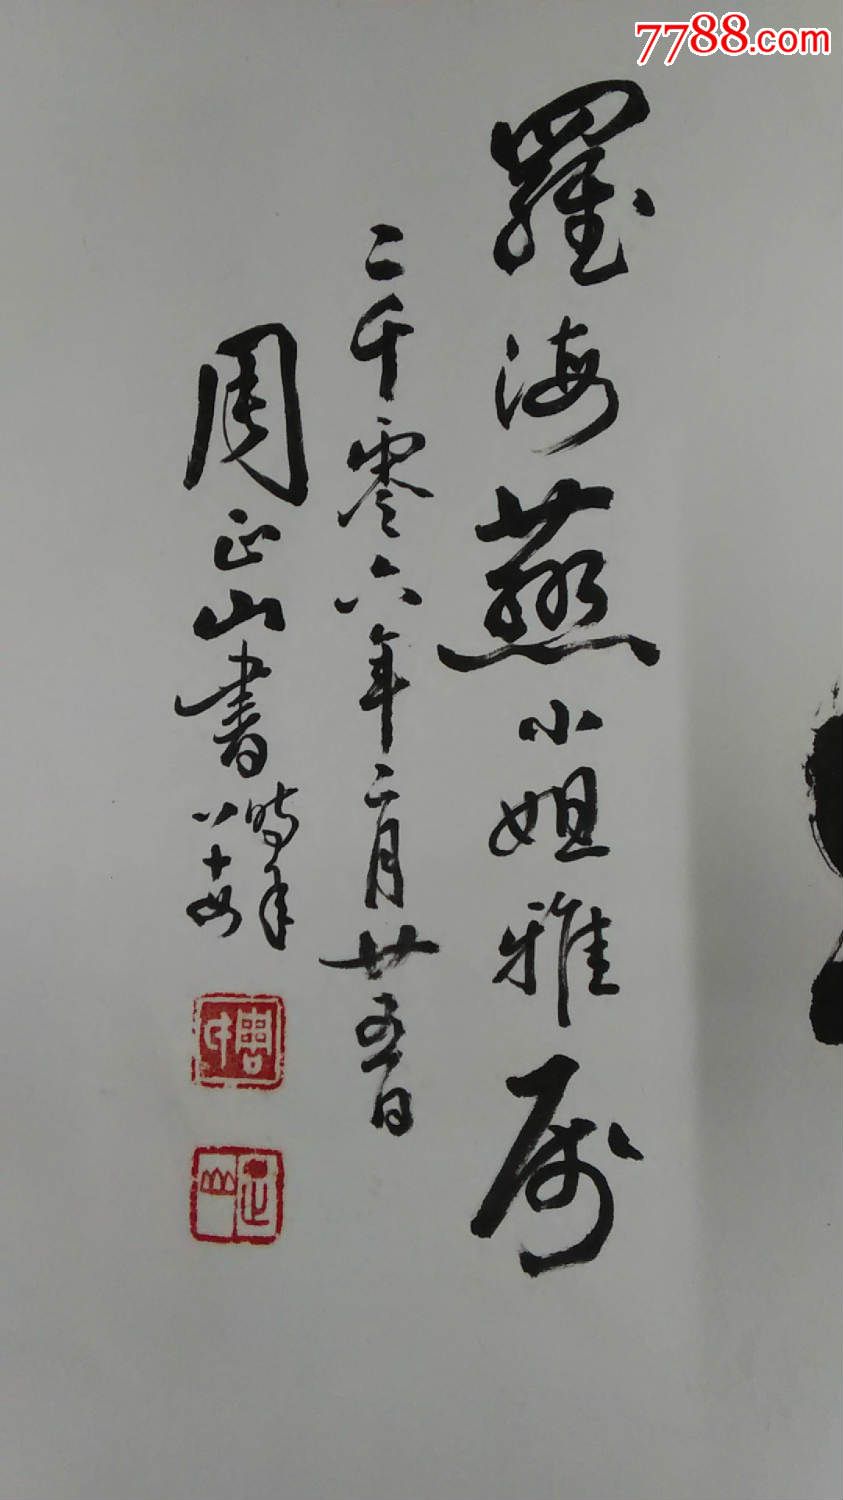 7788.com
羅海燕小姐雅属
二千零六年二月廿五日
周正山書
時年
八十
周印
正山